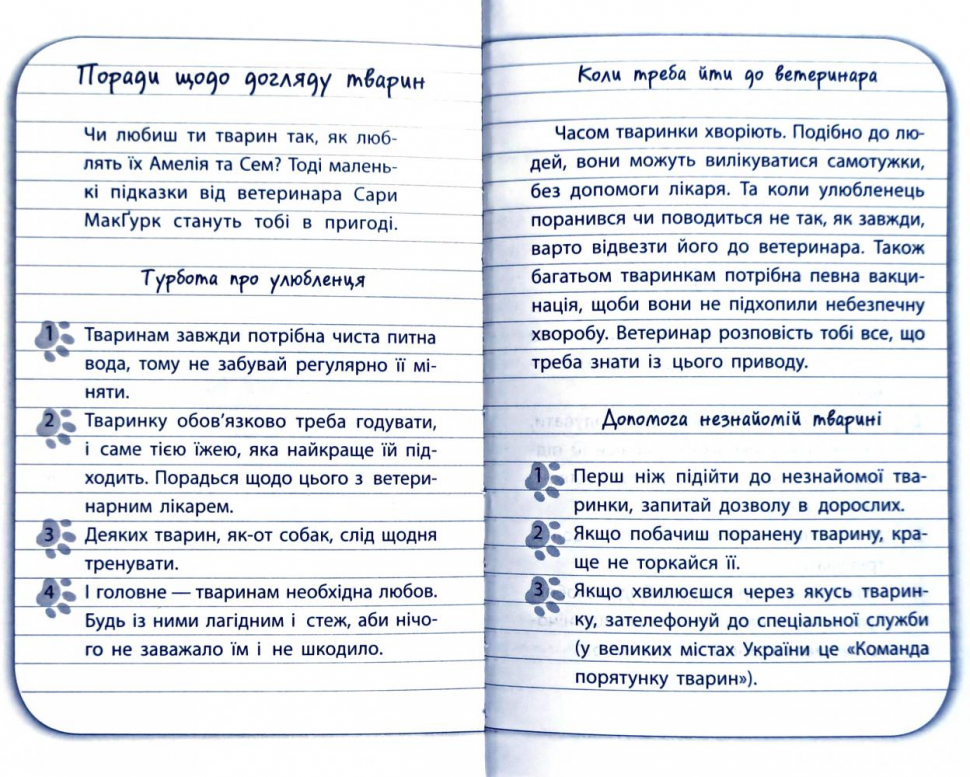 Поради щодо догляду тварин
Чи любиш ти тварин так, як люб-
лять їх Амелія та Сем? Тоді малень-
кі підказки від ветеринара Сари
МакҐурк стануть тобі в пригоді.
Турбота про улюбленця
1 Тваринам завжди потрібна чиста питна
вода, тому не забувай регулярно її мі-
няти.
2 Тваринку обов’язково треба годувати,
і саме тією їжею, яка найкраще їй під-
ходить. Порадься щодо цього з ветери-
нарним лікарем.
3 Деяких тварин, як-от собак, слід щодня
тренувати.
4 І головне — тваринам необхідна любов.
Будь із ними лагідним і стеж, аби нічо-
го не заважало їм і не шкодило.
Коли треба йти до ветеринара
Часом тваринки хворіють. Подібно до лю-
дей, вони можуть вилікуватися самотужки,
без допомоги лікаря. Та коли улюбленець
поранився чи поводиться не так, як завжди,
варто відвезти його до ветеринара. Також
багатьом тваринкам потрібна певна вакци-
нація, щоби вони не підхопили небезпечну
хворобу. Ветеринар розповість тобі все, що
треба знати із цього приводу.
Допомога незнайомій тварині
1 Перш ніж підійти до незнайомої тва-
ринки, запитай дозволу в дорослих.
2 Якщо побачиш поранену тварину, кра-
ще не торкайся її.
3 Якщо хвилюєшся через якусь тварин-
ку, зателефонуй до спеціальної служби
(у великих містах України це «Команда
порятунку тварин»).